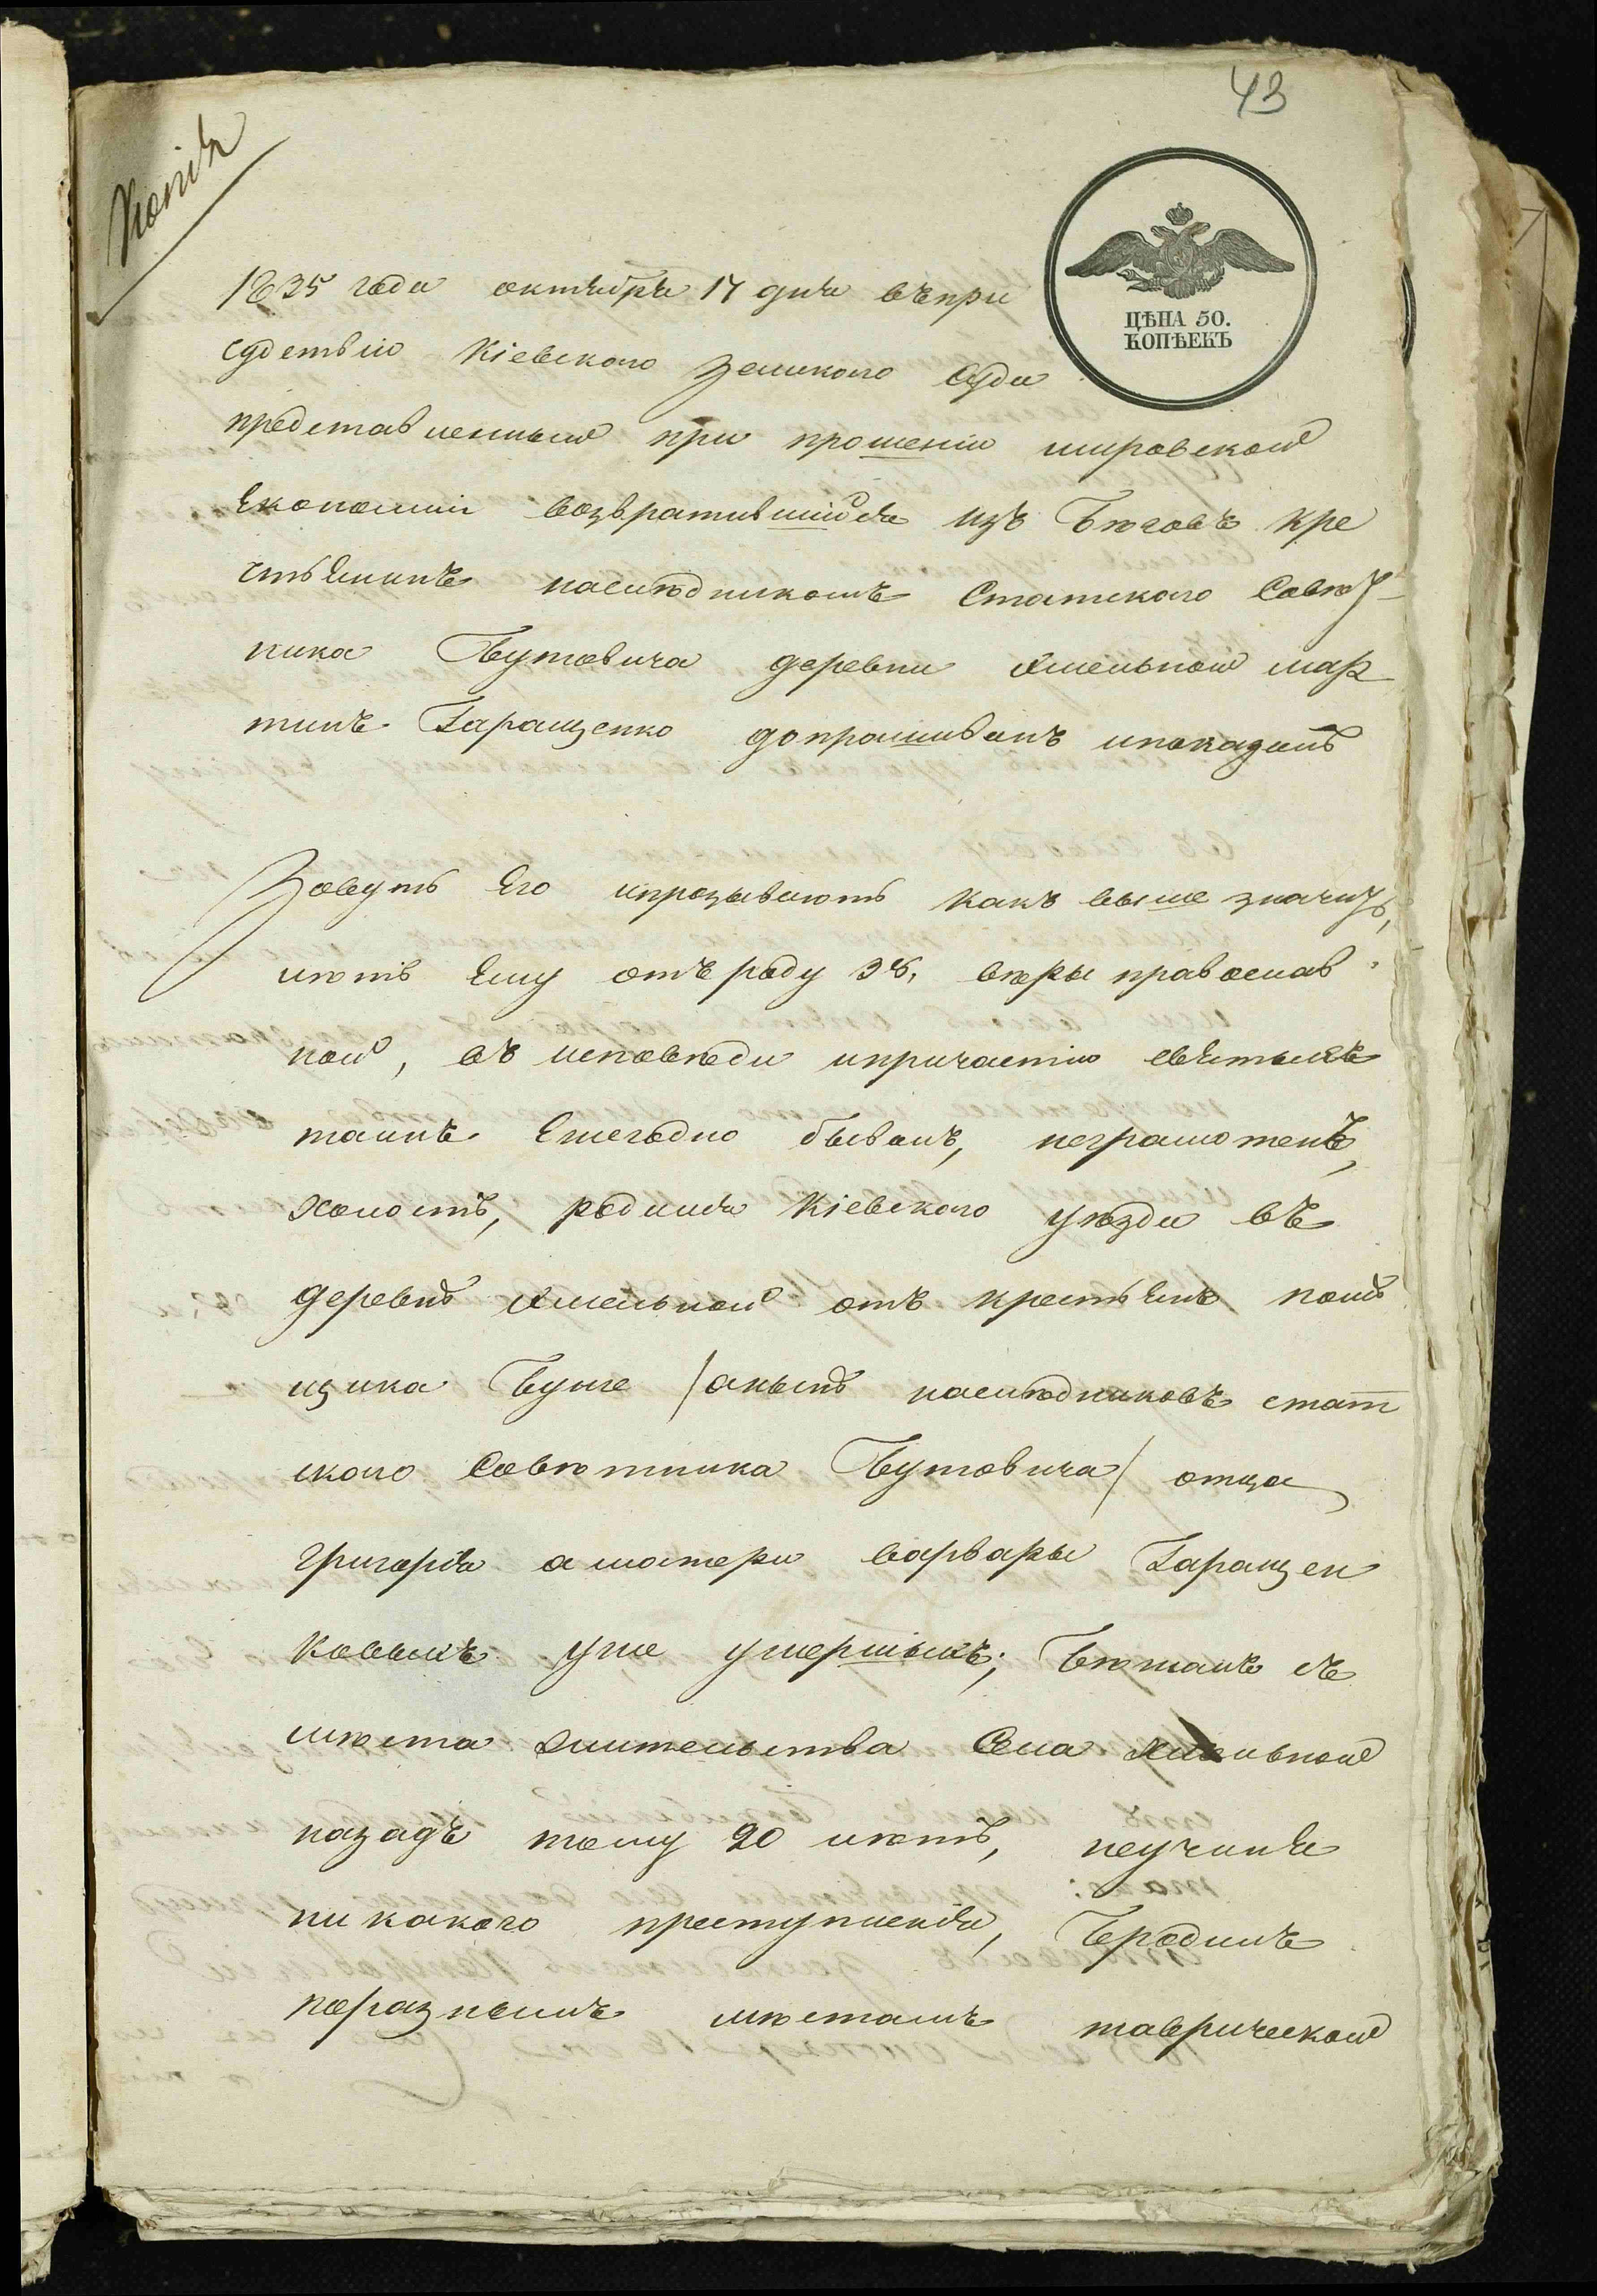 43
Копія
ЦѢНА 50.
КОПѢЕКЪ
1835 года октября 17 дня въпри
судствіи Кіевского Земского Суда
представленный при прошеніи мировской
Економіи возвратившійся изъ Бѣговъ кре
стьянинъ наслѣдникомъ Статского Совѣт
ника Бутовича деревни Хмельной мар
тинъ Гаращенко допрашиванъ ипоказалъ
Зовутъ Его ипрозываютъ какъ выше значитъ,
лѣтъ Ему отъ роду 38, вѣры православ
ной, въ исповѣди ипричастіи святыхъ
таинъ Ежегодно бывалъ, неграмотенъ,
холостъ, родился Кіевского уѣзда въ
деревнѣ Хмельной отъ крестьянъ помѣ
щика Бунге /анынѣ наслѣдниковъ стат
ского Совѣтника Бутовича/ отца
григорія аматери варвары Гаращен
ковыхъ уже умершихъ; Бѣжалъ съ
мѣста жительства Села Хмельной
назадъ тому 20 лѣтъ, неучиня
никакого преступленія, Бродилъ
поразнымъ мѣстамъ таврической